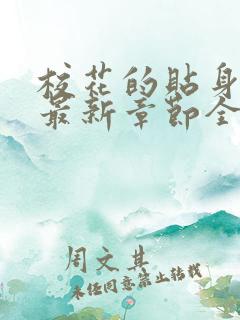 校花的贴身
最新章节全
周文其
未经同意禁止转载